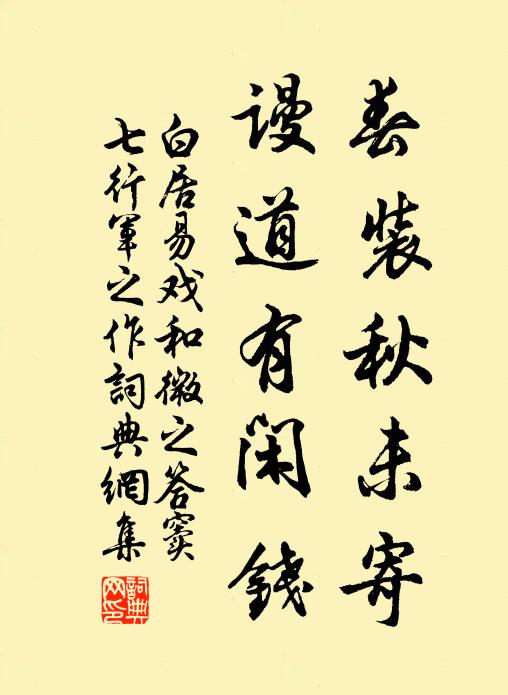 春装秋未寄
謾道有闲錢
白居易戏和微之答窦
七行军之作詞典網集
詞典网印